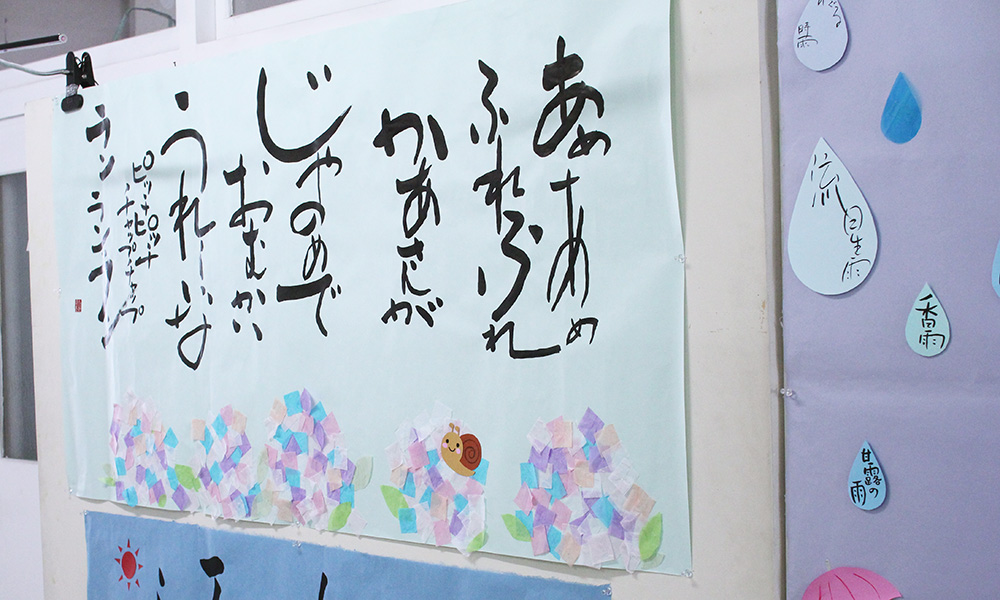 あめあめ
ふれふれ
かあさんが
じゃのめで
おむかい
うれしいな
ピッチピッチ
チャップチャップ
ランランラン
時雨
流星雨
香雨
甘露の
雨